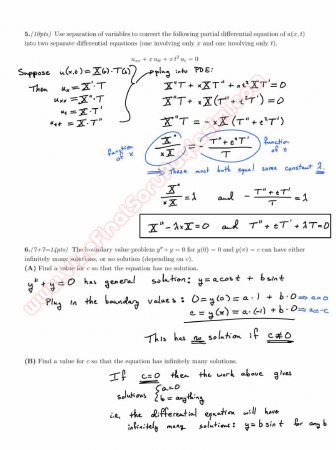 5.(10pts) Use separation of variables to convert the following partial differential equation of u(x,t)
into two separate differential equations (one involving only x and one involving only t).
u_xx + x u_tt + x t² u_t = 0
Suppose u(x,t) = X(x)·T(t)
Then u_x = X'·T
u_xx = X''·T
u_t = X·T'
u_tt = X·T''
plug into PDE:
X''T + xXT'' + xt²XT' = 0
X''T + xX(T'' + t²T') = 0
X''T = -xX(T'' + t²T')
function of x
X''/xX = - (T'' + t²T')/T
function of t
⇒ These must both equal some constant λ
X''/xX = λ and - (T'' + t²T')/T = λ
X'' - λxX = 0 and T'' + t²T' + λT = 0
6.(7+7=14pts) The boundary value problem y'' + y = 0 for y(0) = 0 and y(π) = c can have either
infinitely many solutions, or no solution (depending on c).
(A) Find a value for c so that the equation has no solution.
y'' + y = 0 has general solution: y = a cost + b sint
Plug in the boundary values: 0 = y(0) = a·1 + b·0 ⇒ a=0
c = y(π) = a·(-1) + b·0 ⇒ a=-c
This has no solution if c≠0
(B) Find a value for c so that the equation has infinitely many solutions.
If c=0 then the work above gives
solutions { a=0
b = anything
i.e. the differential equation will have
infinitely many solutions: y = b sint for any b